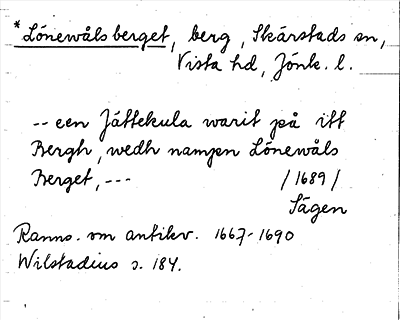 *Lönewåls berget, berg, Skärstads sn,
Vista hd, Jönk. l.
-- een Jättekula warit på itt
Bergh, wedh nampn Lönewåls
Berget, --- /1689/
Sägen
Ranns. om antikv. 1667-1690
Wilstadius s. 184.